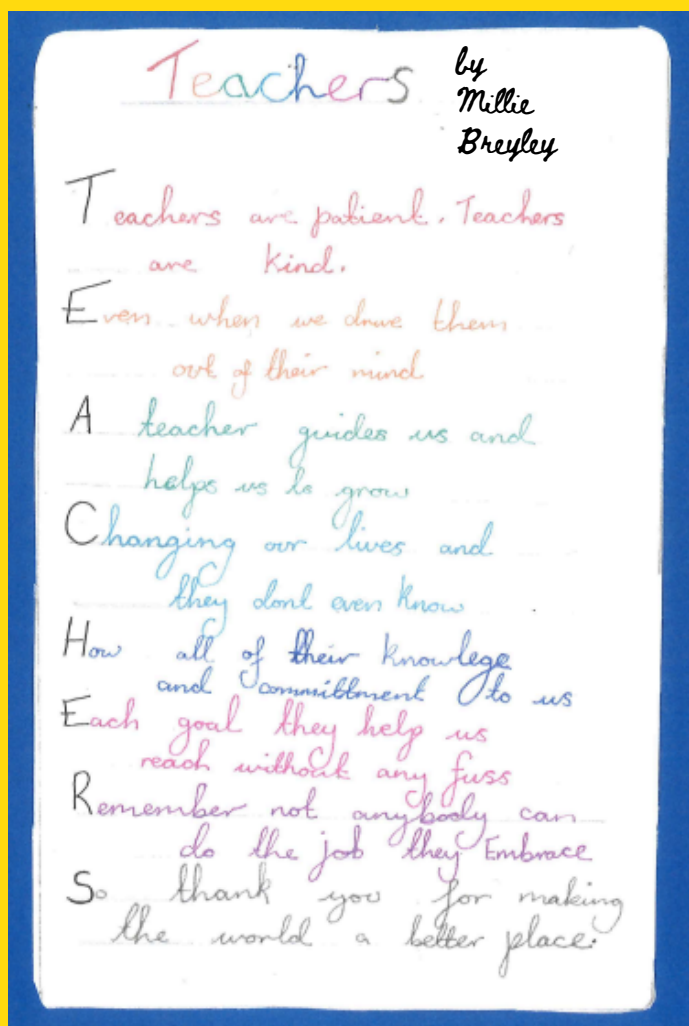 Teachers
by
Millie
Breyley
Teachers are patient. Teachers
are kind.
Even when we drive them
out of their mind
A teacher guides us and
helps us to grow
Changing our lives and
they dont even know
How all of their knowlege
and committment to us
Each goal they help us
reach without any fuss
Remember not anybody can
do the job they Embrace
So thank you for making
the world a better place.